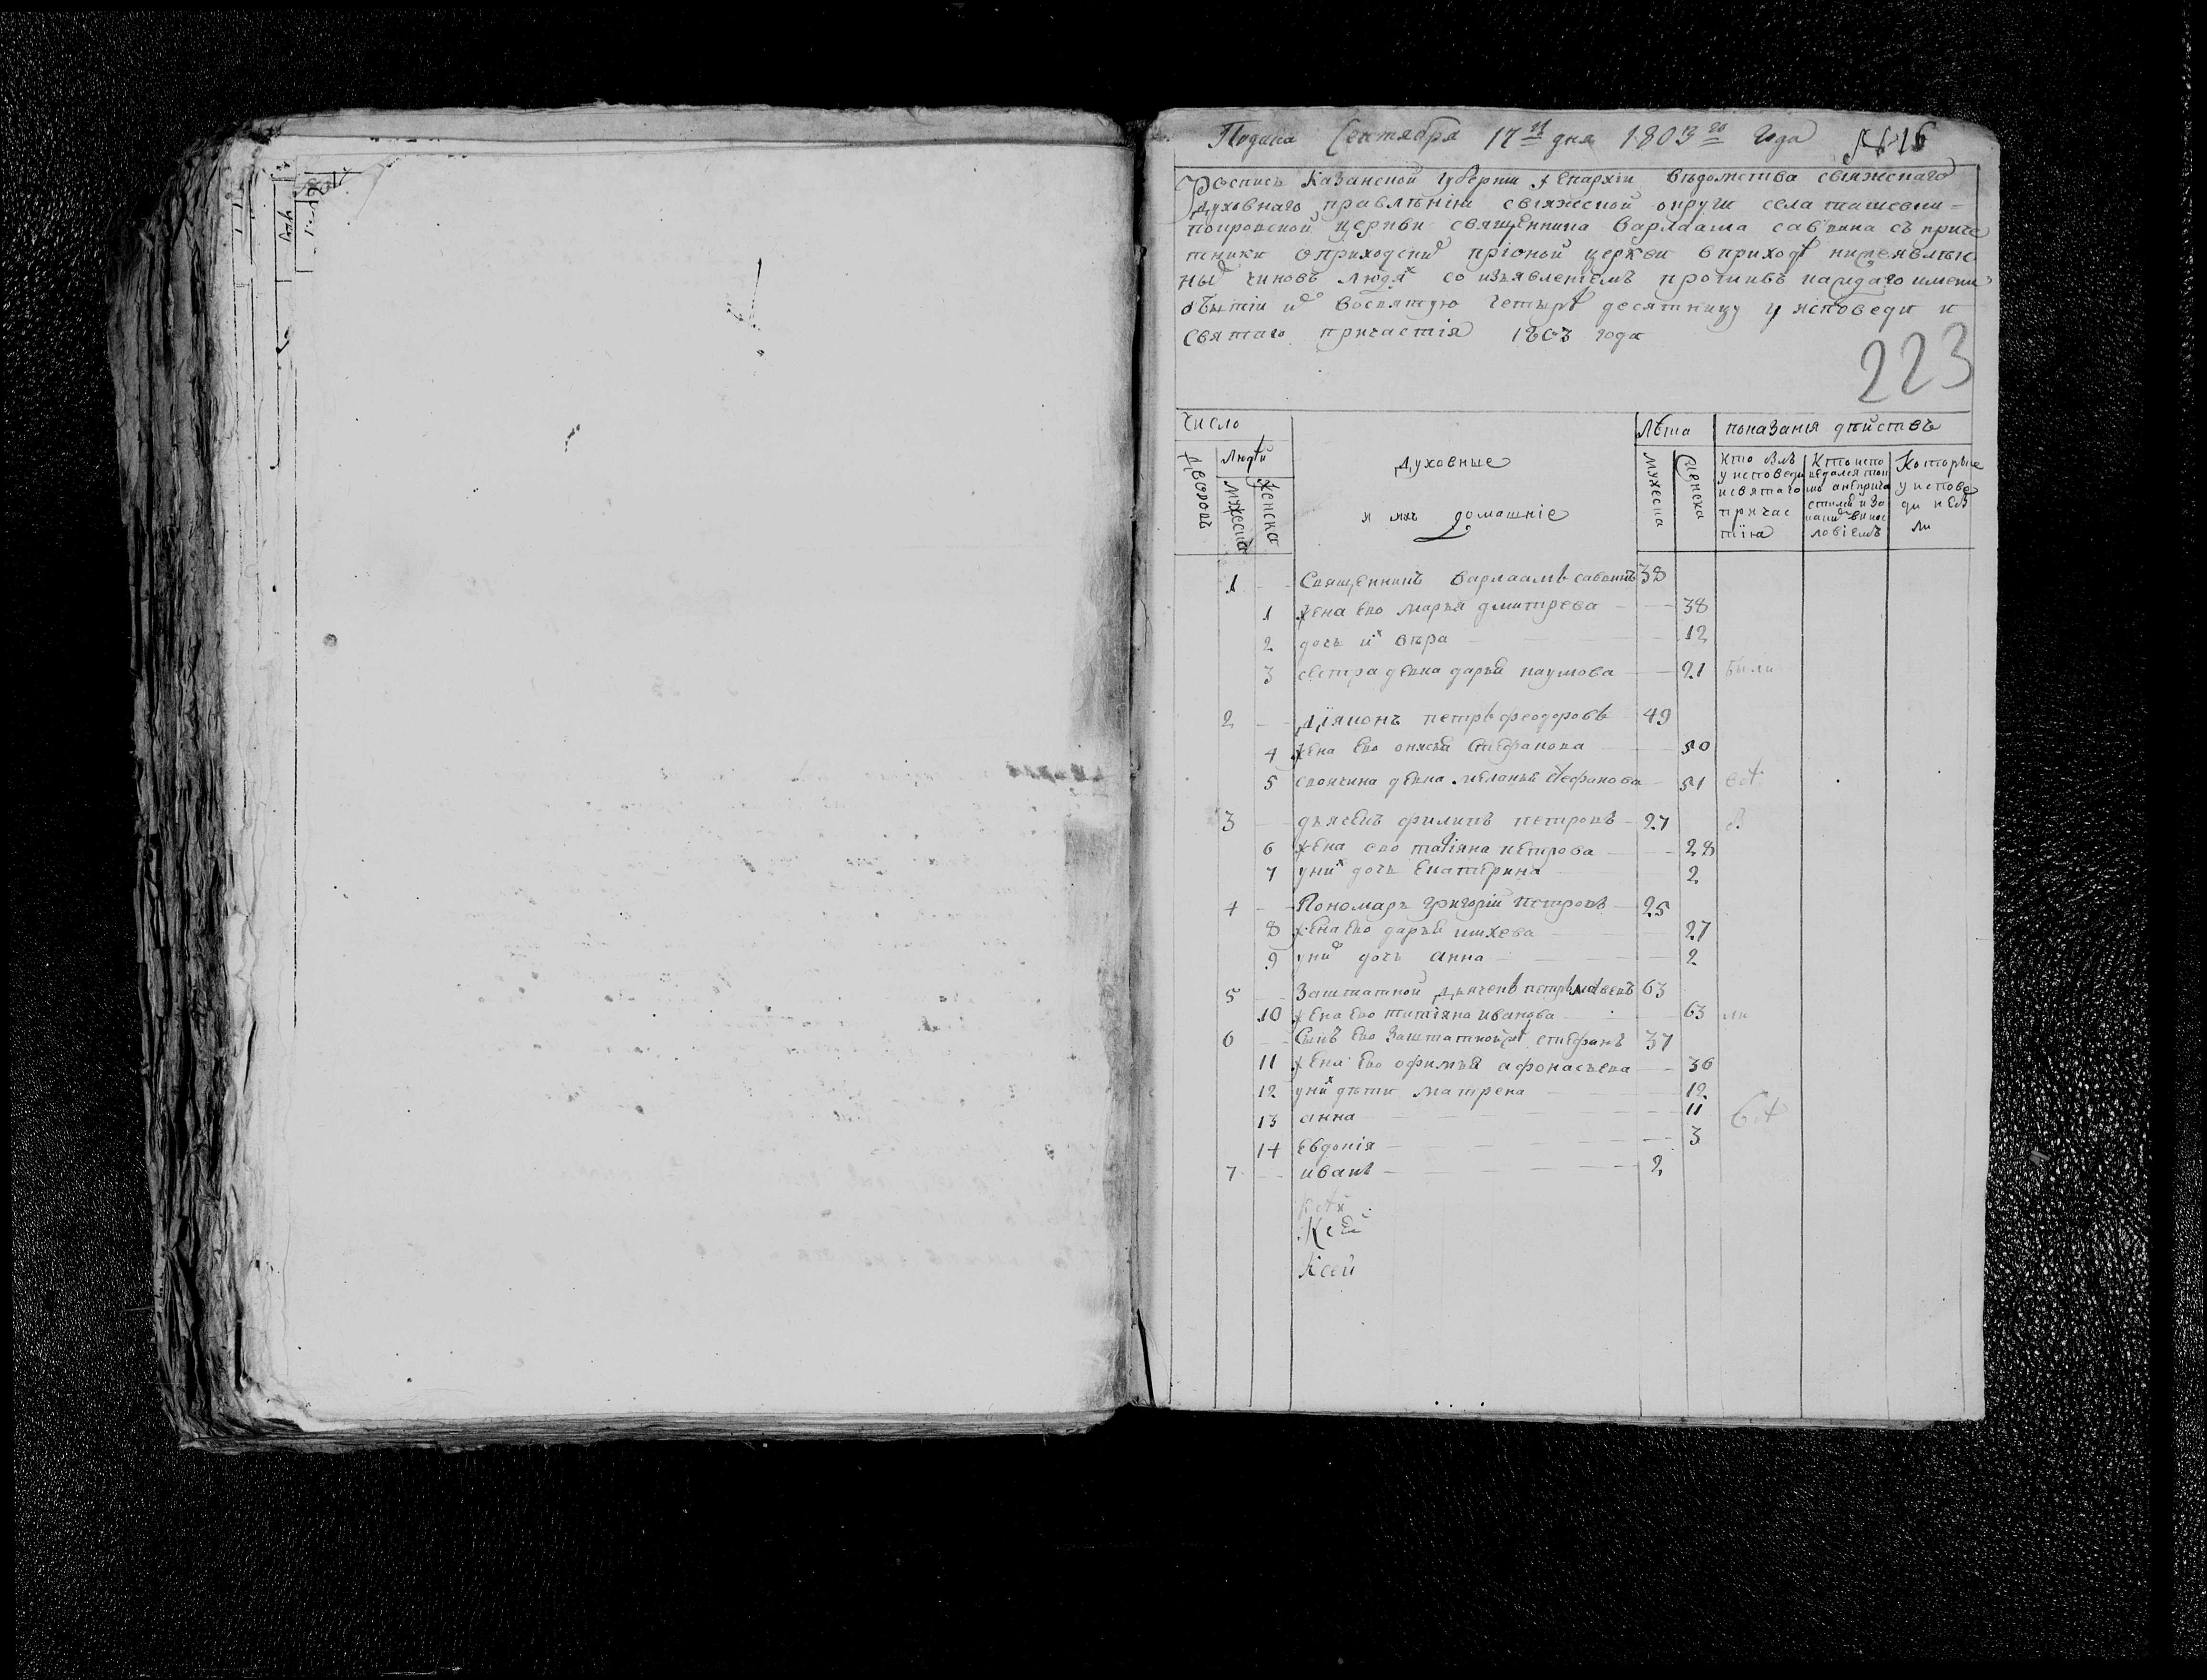 Подана Сентября 17 дня 1803 го года №16
Роспись Казанской губернии и Епархіи вѣдомства свіяжскаго
духовнаго правлѣнія свіяжской округи села ташевки
покровской церкви священника Варлаама саввина съ приче
тники оприходскихъ при оной церкви в приходѣ нижеявлен
ныхъ чиновъ людяхъ со изъявлениемъ противъ каждаго имени
бытіи ихъ во святую четыредесятницу у исповеди и
святаго причастія 1803 года
223
Число Лѣта показанія дѣйствъ
Дворовъ Людей мужеска женска
Духовные
и ихъ домашніе
мужеска женска
Кто былъ у исповеди и святаго причастїя
Кто испо ведался токмо а не прича стился и за какимъ винословіемъ
Которые у исповеди не были
1 Священникъ Варлаамъ саввинъ 38
1 жена ево марья дмитрева 38
2 дочь ихъ вѣра 12
3 сестра девка дарья наумова 21 были
2 Діяконъ петръ феодоровъ 49
4 жена ево Стефанова 50
5 своячина девка меланья Стефанова 51 всѣ
3 дьячекъ филипъ петровъ 27
6 жена ево татіяна петрова 28
7 у нихъ дочь Екатерина 2
4 Пономарь григорій петровъ 25
8 жена ево дарья 27
9 у нихъ дочь анна 2
5 Заштатной дьячекъ петръ 63
10 жена ево татіяна иванова 63 ли
6 Сынъ ево заштатной стефанъ 37
11 жена ево офимья афонасьева 36
12 у нихъ дѣти матрена 12
13 анна 11 всѣ
14 Евдокія 3
7 иванъ 2
Ксей
Ксей